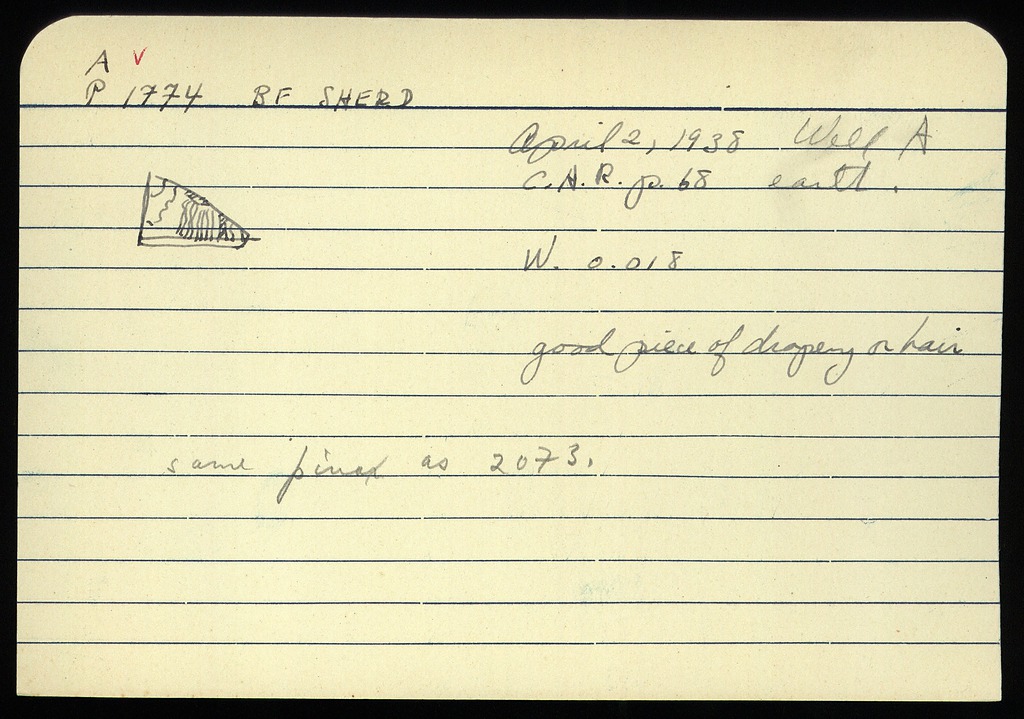 A V
P 1774 BF SHERD
April 2, 1938 Well A
C.H.R. p. 68 earth.
W. 0.018
good piece of drapery or hair
same pinax as 2073.